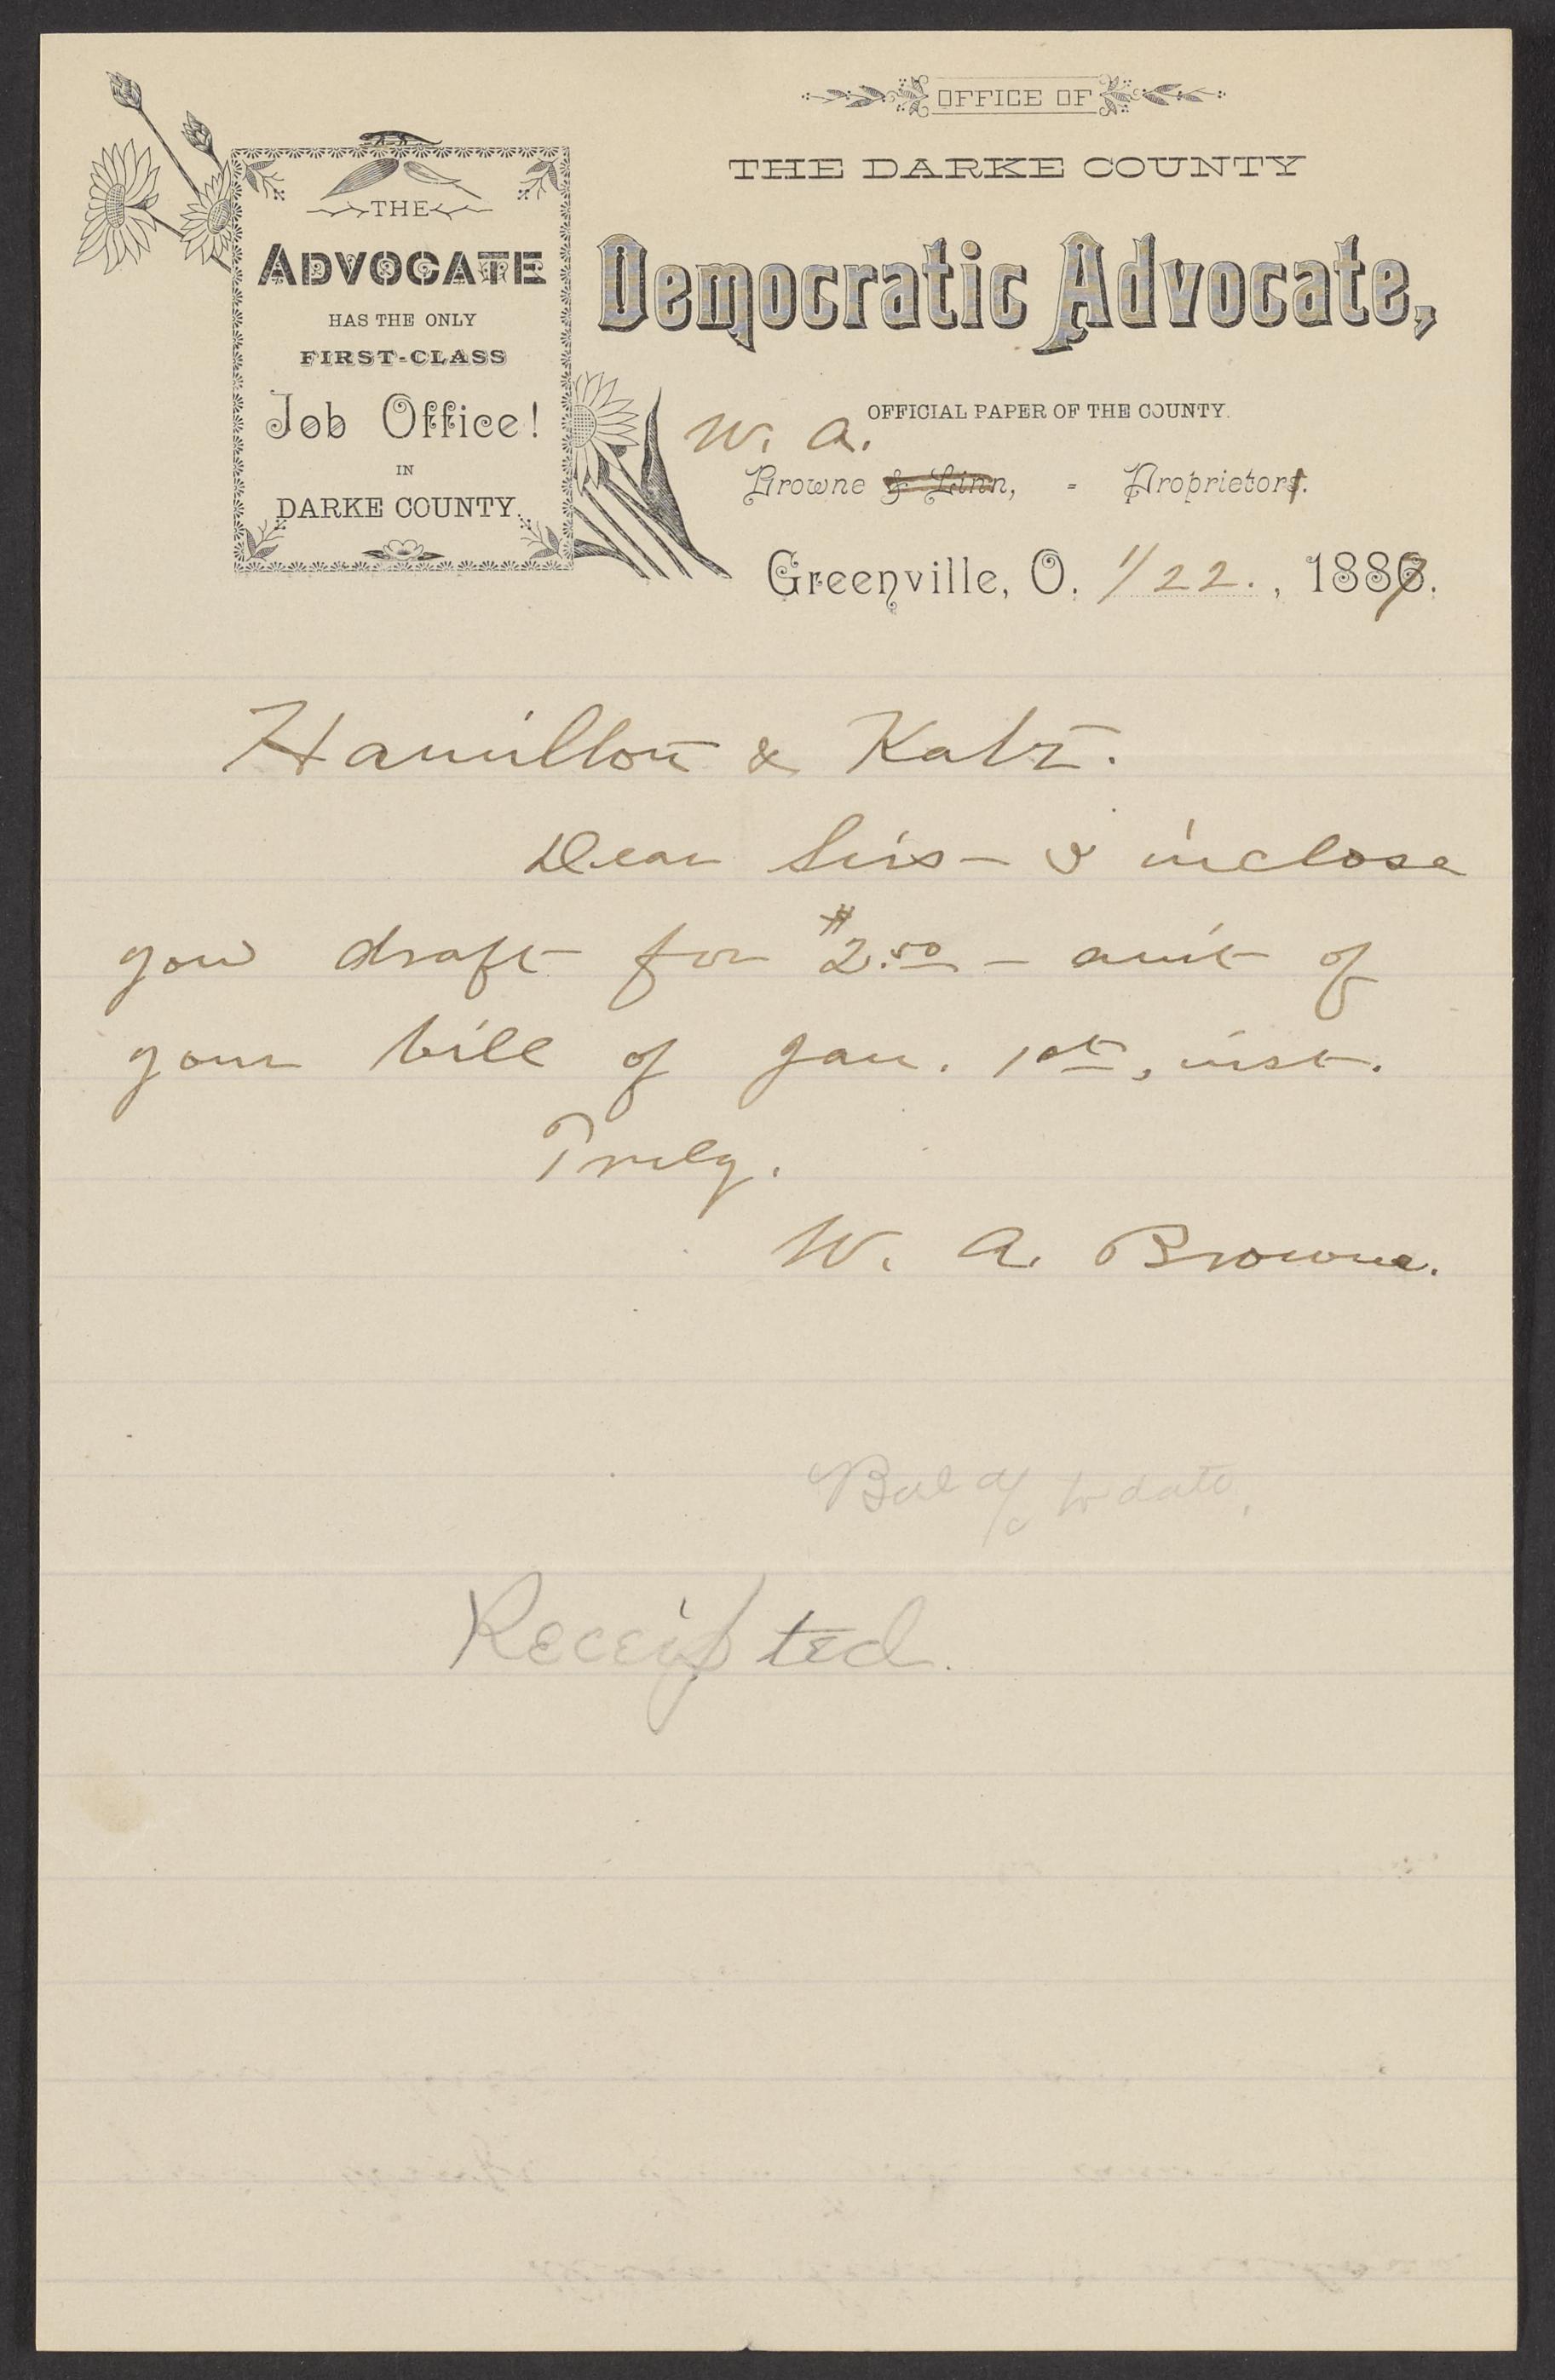 OFFICE OF
THE DARKE COUNTY
Democratic Advocate,
OFFICIAL PAPER OF THE COUNTY.
W. A.
Browne & Linn, - Proprietors.
Greenville, O. 1/22. , 1887.
THE
ADVOCATE
HAS THE ONLY
FIRST-CLASS
Job Office!
IN
DARKE COUNTY.
Hamilton & Katz.
Dear Sirs - I inclose
you draft for $2.50 - am't of
your bill of Jan. 1st, inst.
Truly.
W. A. Browne.
Bal a/c to date.
Receipted.